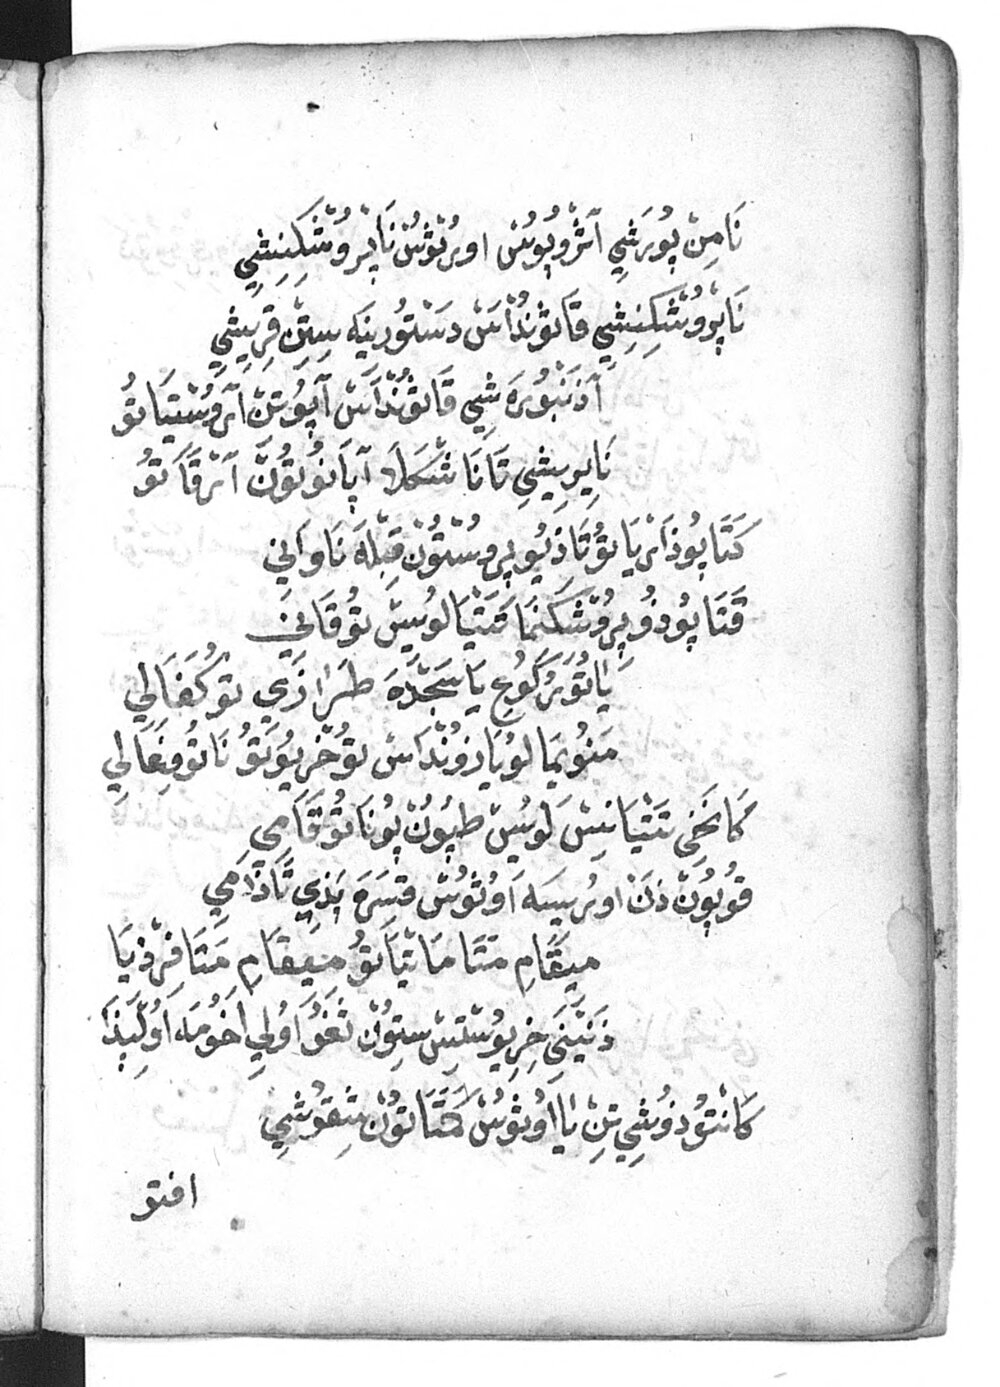 نَامِنْ پُورَشِي آثْرُوپُوسْ اورْتُوثُسْ نَاپْرُوشْكِنِشِي
نَاپْرُوشْكِنِشِي قَاتُونْدَاسْ دَسْتُورِينَه سِتِنْ قِرِيشِي
آذَنْبُورَه شِي قَاتُونْدَاسْ آپُوتِنْ آرْوُسْتِيَا تُو
نَايِرِيشِي تَانَا شْكَلَا آپَانُو تُونْ آرْقَا تُو
كَتَاپُوذَارْيَا تُو تَاذِيُو پْرُوسْتُونْ قِبْلَه نَاوَانِي
قَتَاپُوذُو پْرُوشْكَنِمَا تَتْيَالُويِسْ تُوقَانِي
يَاتُو رُكُوعِ يَا سَجْدَه طَرَا زَي تُو كَفَالِي
مَنُويمَا لُويَازُونْدَاسْ تُو خْرِيُو تُو نَاتُو فِغَالِي
كَانَخِي تَتْيَانِسْ لَويِسْ طِپُوتْ پُونَا تُو قَامِي
قُوپُونْ ذَنْ اورِيسَه اَوُتُوسْ قِسَرَه پَذِي تَاذَامِي
مِيقَامِ مَتَامَاتْيَا تُو مِيقَامِ مَتَافِرْذِيَا
ذَنْيَنِي خِرِيُوسْتِسْ سِتُونْ ثَغَوُ اوُلِي اَخُومَه اَوُلْپِيذَا
كَانْتُوذُوشِي تِنْ يَا اَوُتُوسْ كَتَاتُونْ شِقُوشِي
افتو